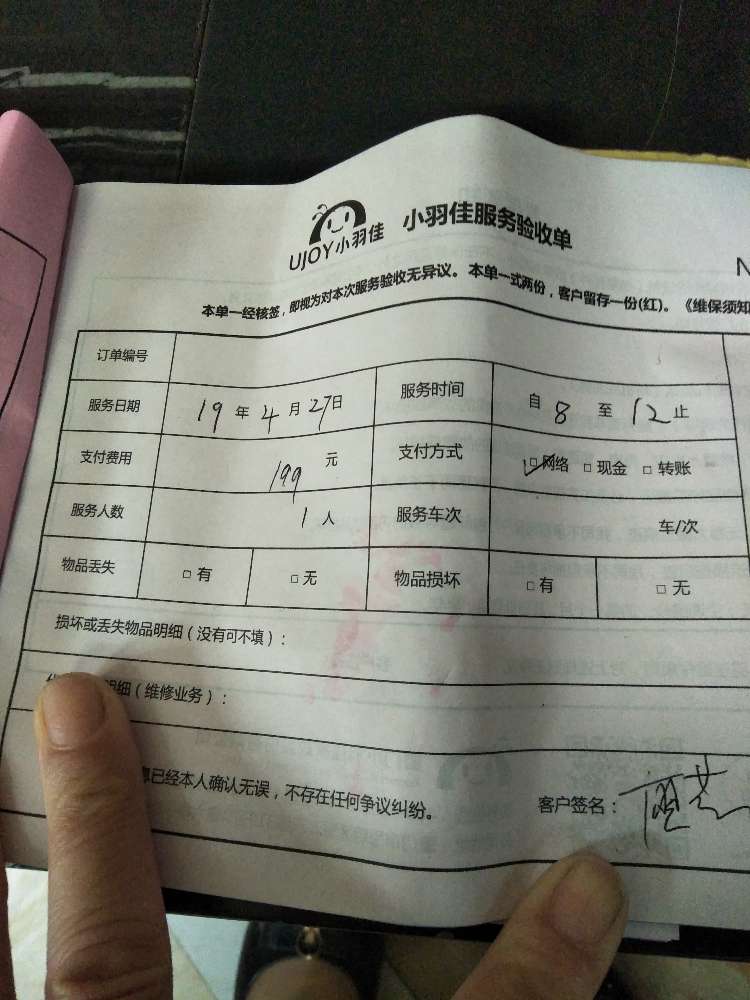 UJOY小羽佳 小羽佳服务验收单
N
本单一经核签，即视为对本次服务验收无异议。本单一式两份，客户留存一份(红)。《维保须知
订单编号
服务日期 19 年 4 月 27 日 服务时间 自 8 至 12 止
支付费用 199 元 支付方式 ☑ 网络 □ 现金 □ 转账
服务人数 1 人 服务车次 车/次
物品丢失 □ 有 □ 无 物品损坏 □ 有 □ 无
损坏或丢失物品明细（没有可不填）：
明细（维修业务）：
已经本人确认无误，不存在任何争议纠纷。 客户签名：